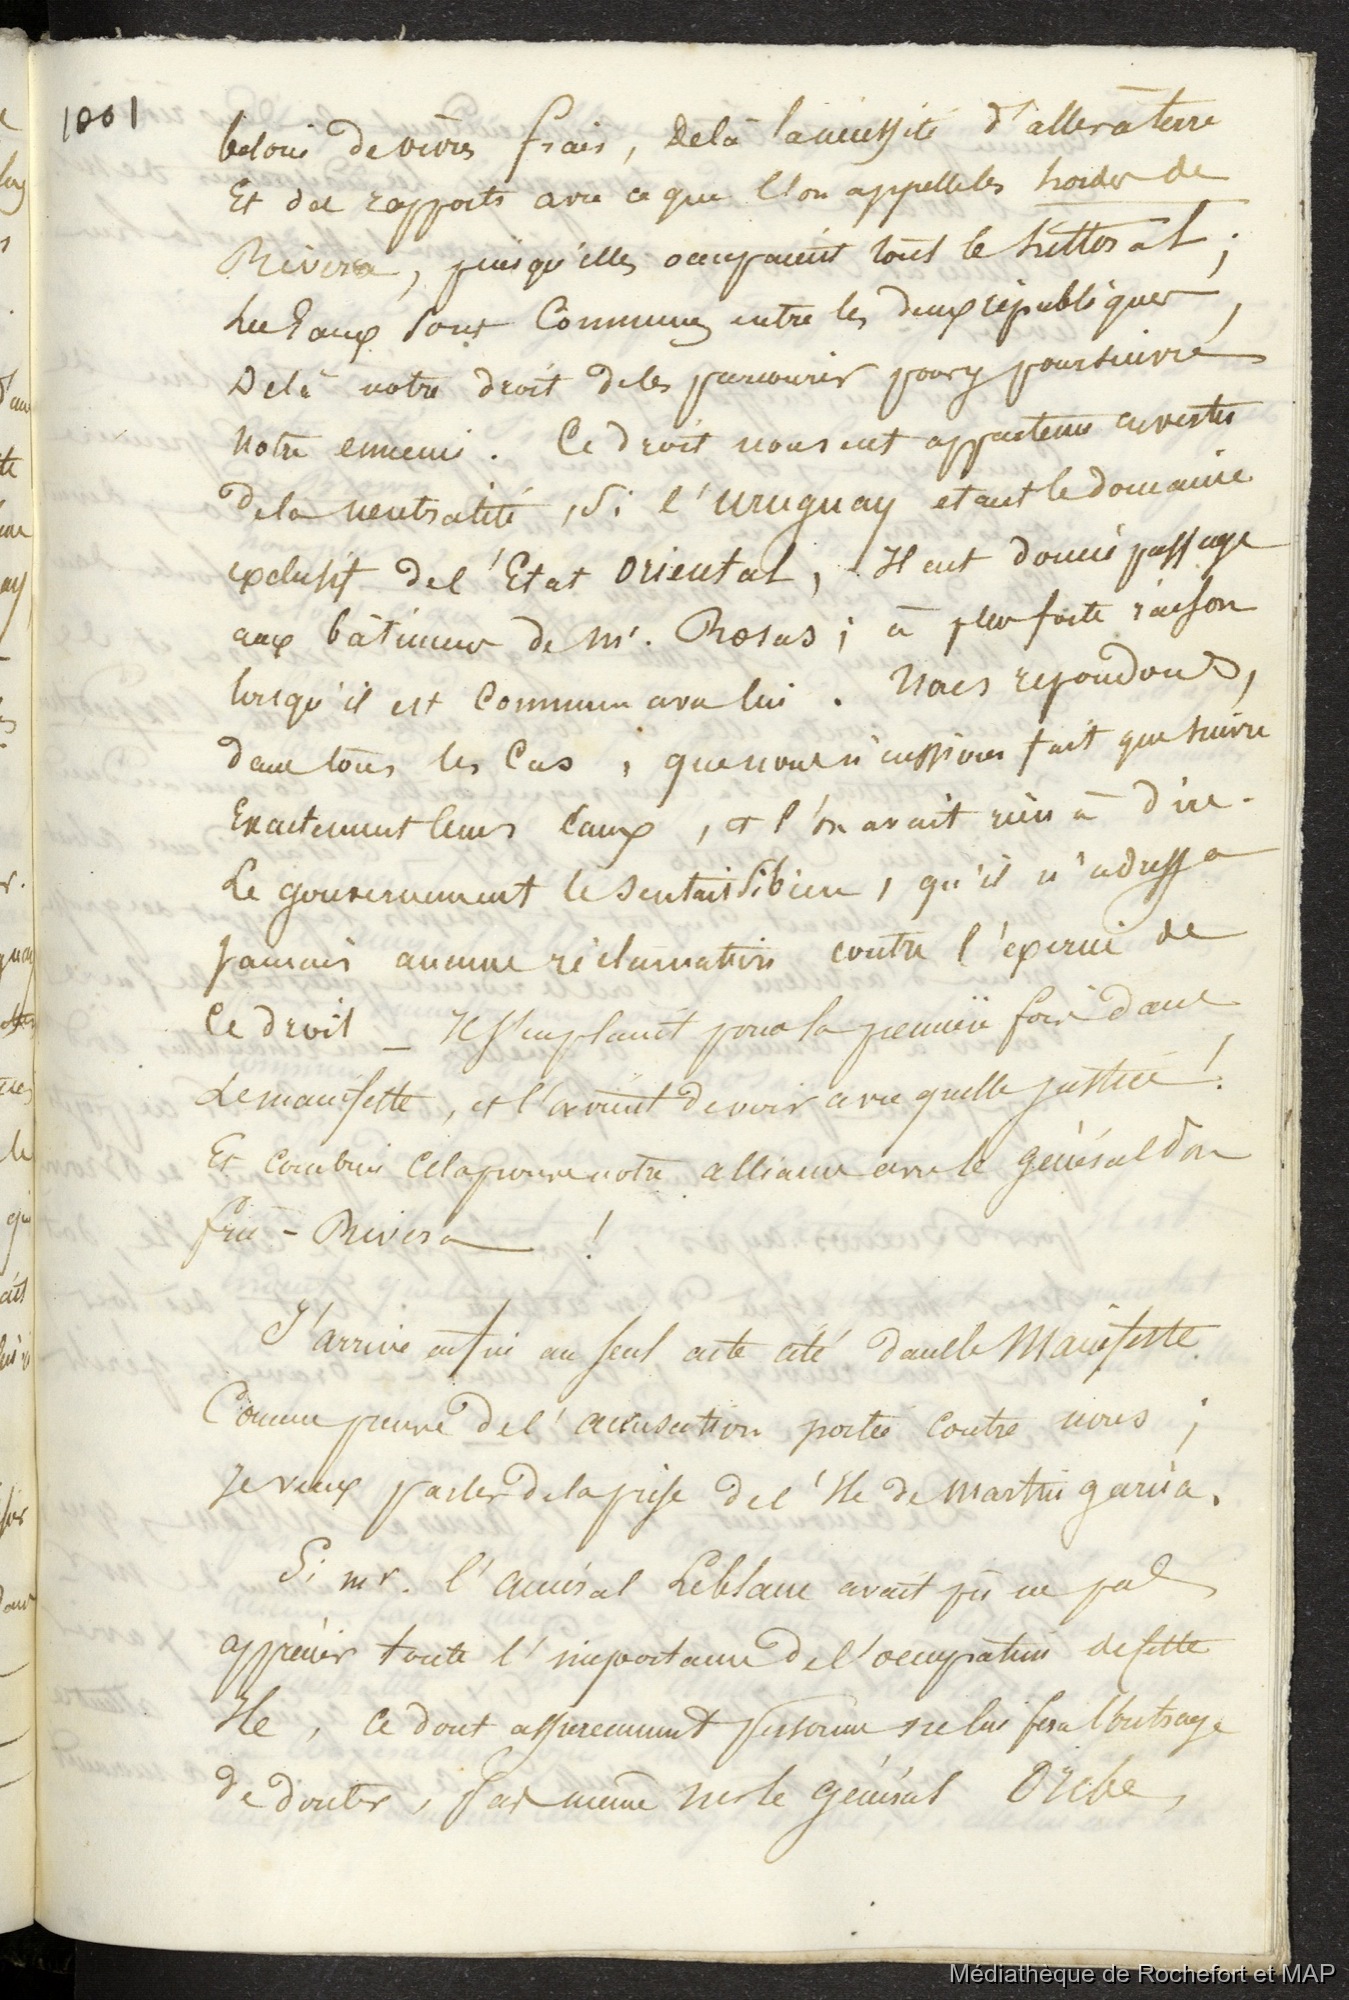 1001
besoin de vivres frais, delà la nécessité d'aller à terre
Et des rapports avec ce que l'on appelle les hordes de
Rivera, puisqu'elles occupaient tout le littoral;
Les Eaux sont Communes entre les deux républiques,
Delà notre droit de les parcourir pour y poursuivre
notre ennemi. Ce droit nous eut appartenu en vertu
de la neutralité, si l'uruguay etant le domaine
exclusif de l'Etat oriental, Il eut donné passage
aux bâtimens de Mr. Rosas; à plus forte raison
lorsqu'il est Commun avec lui. Nous repondons,
dans tous les Cas, que nous n'eussions fait que suivre
Exactement leurs Eaux, et l'on avait rien à dire.
Le gouvernement le sentait si bien, qu'il n'adressa
jamais aucune réclamation contre l'exercice de
Ce droit _ Il s'en plaint pour la première fois dans
Le manifeste, et l'on vient de voir avec quelle justice!
Et combien cela prouve notre alliance avec le général don
fruc-Rivera !
J'arrive enfin au seul acte cité dans le Manifeste
Comme preuve de l'accusation portée contre nous;
Je veux parler de la prise de l'Ile de Martin garcia.
Si mr. l'amiral Leblanc avait pû ne pas
apprécier toute l'importance de l'occupation de cette
Ile, ce dont assurement personne ne lui fera l'outrage
de douter, pas même Mr le général Oribe,
Médiathèque de Rochefort et MAP